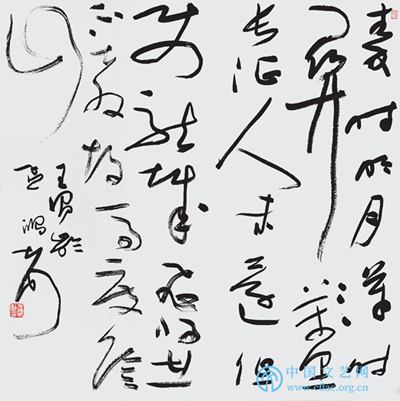 秦时明月漢时
關萬里
长征人未還但
使龙城飛将在
不教胡马度陰
山
王昌龄
中国文艺网
www.cflac.org.cn